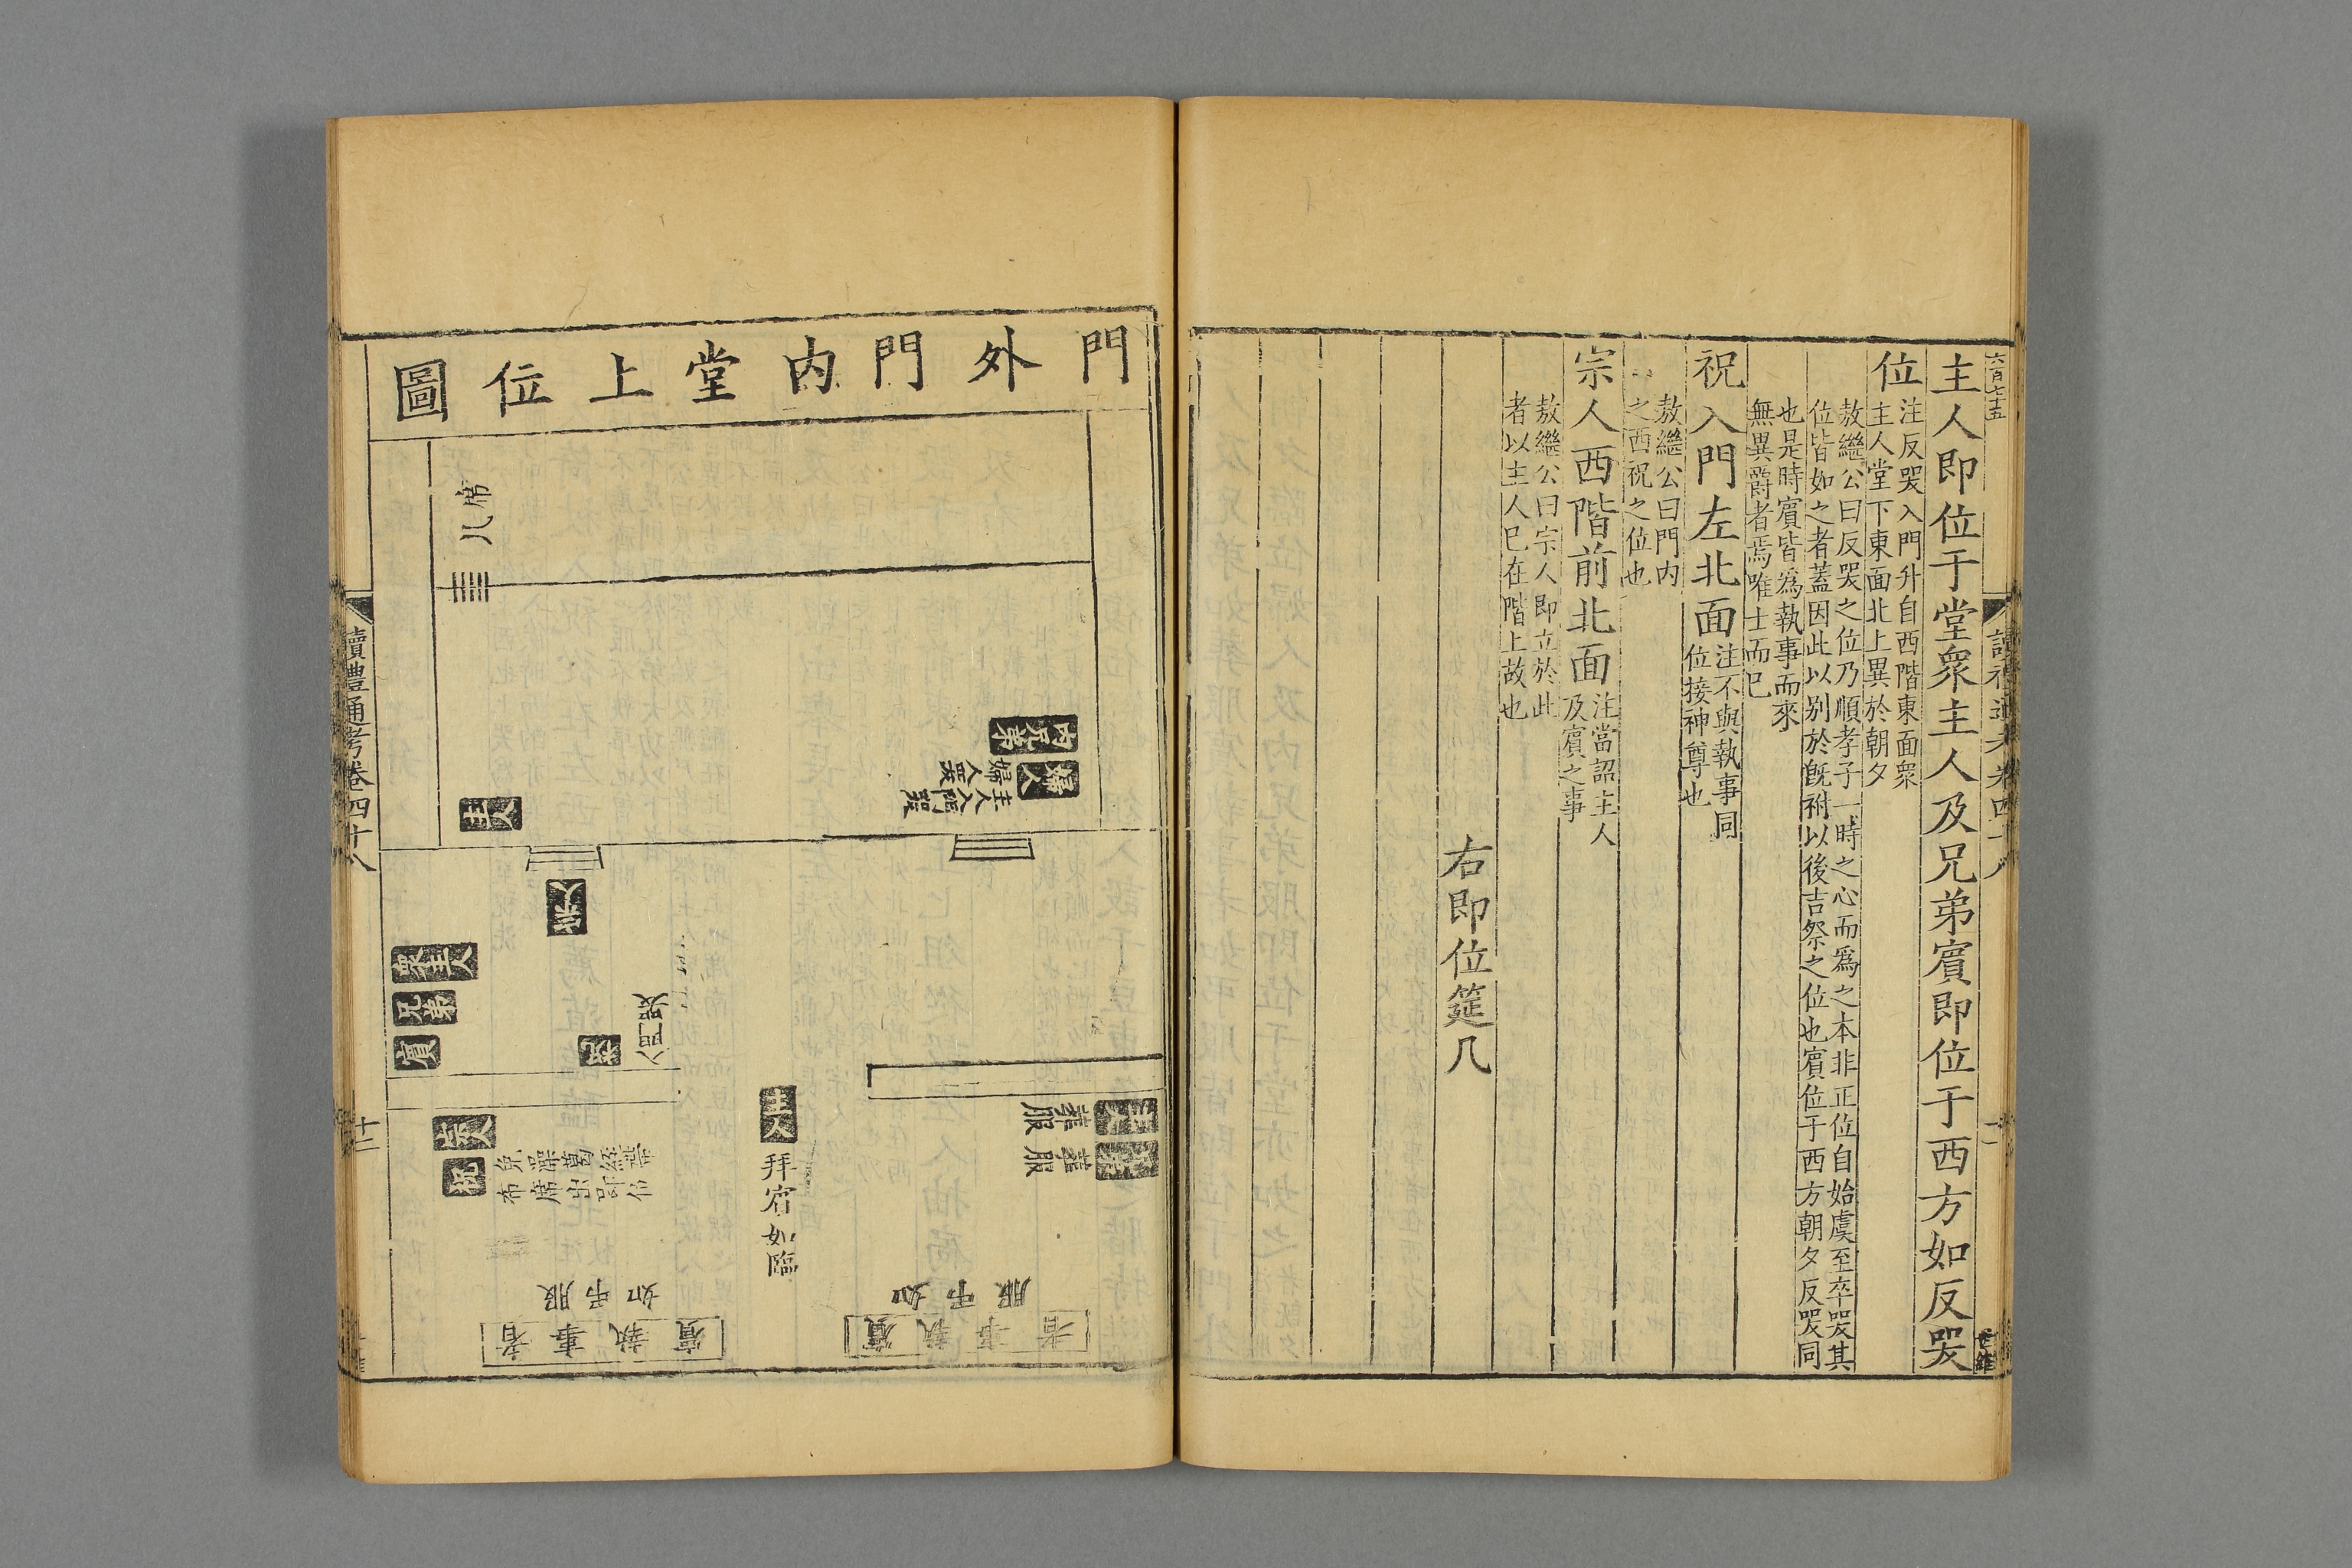 六百七十五
主人即位于堂衆主人及兄弟賓即位于西方如反哭
位
注反哭入門升自西階東面衆
主人堂下東面北上異於朝夕
敖繼公曰反哭之位乃順孝子一時之心而爲之本非正位自始虞至卒哭其
位皆如之者蓋因此以别於旣祔以後吉祭之位也賓位于西方朝夕反哭同
也是時賓皆爲執事而來
無異爵者焉唯士而已
祝入門左北面
注不與執事同
位接神尊也
敖繼公曰門内
之西祝之位也
宗人西階前北面
注當詔主人
及賓之事
敖繼公曰宗人即立於此
者以主人已在階上故也
右即位筵几
門外門内堂上位圖
席
几
内兄弟
婦人
婦人哭
主人入門哭
主人
宗人
衆主人
兄弟
賓
祝
入門哭
主人
拜賓如臨
葬服
葬服
宗人
祝
免澡葛絰帶
布席
如弔服
賓執事者
如弔服
賓執事者
讀禮通考卷四十八
十二